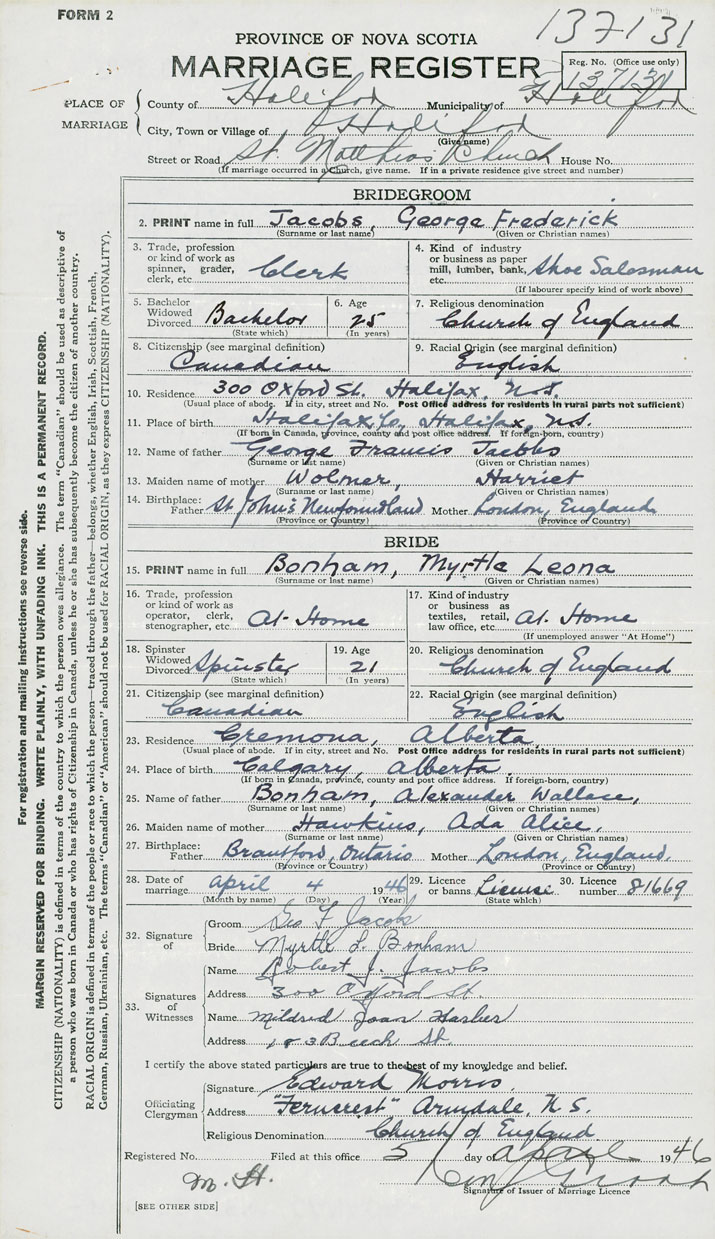 FORM 2
137131
PROVINCE OF NOVA SCOTIA
MARRIAGE REGISTER
Reg. No. (Office use only)
137131
PLACE OF MARRIAGE
County of Halifax Municipality of Halifax
City, Town or Village of Halifax
(Give name)
Street or Road St. Matthias Church House No.
(If marriage occurred in a Church, give name. If in a private residence give street and number)
BRIDEGROOM
2. PRINT name in full Jacobs, George Frederick
(Surname or last name) (Given or Christian names)
3. Trade, profession or kind of work as spinner, grader, clerk, etc. Clerk
4. Kind of industry or business as paper mill, lumber, bank, etc. Shoe Salesman
(If labourer specify kind of work above)
5. Bachelor Widowed Divorced Bachelor
(State which)
6. Age 25
(In years)
7. Religious denomination
Church of England
8. Citizenship (see marginal definition)
Canadian
9. Racial Origin (see marginal definition)
English
10. Residence 300 Oxford St. Halifax, N.S.
(Usual place of abode. If in city, street and No. Post Office address for residents in rural parts not sufficient)
11. Place of birth Halifax Co, Halifax, N.S.
(If born in Canada, province, county and post office address. If foreign-born, country)
12. Name of father George Francis Jacobs
(Surname or last name) (Given or Christian names)
13. Maiden name of mother Wolmer, Harriet
(Surname or last name) (Given or Christian names)
14. Birthplace: Father St John's Newfoundland Mother London, England
(Province or Country) (Province or Country)
BRIDE
15. PRINT name in full Bonham, Myrtle Leona
(Surname or last name) (Given or Christian names)
16. Trade, profession or kind of work as operator, clerk, stenographer, etc. At-Home
17. Kind of industry or business as textiles, retail, law office, etc. At. Home
(If unemployed answer "At Home")
18. Spinster Widowed Divorced Spinster
(State which)
19. Age 21
(In years)
20. Religious denomination
Church of England
21. Citizenship (see marginal definition)
Canadian
22. Racial Origin (see marginal definition)
English
23. Residence Cremona, Alberta
(Usual place of abode. If in city, street and No. Post Office address for residents in rural parts not sufficient)
24. Place of birth Calgary, Alberta.
(If born in Canada, province, county and post office address. If foreign-born, country)
25. Name of father Bonham, Alexander Wallace,
(Surname or last name) (Given or Christian names)
26. Maiden name of mother Hawkins, Ada Alice,
(Surname or last name) (Given or Christian names)
27. Birthplace: Father Brantford, Ontario Mother London, England.
(Province or Country) (Province or Country)
28. Date of marriage April 4 1946
(Month by name) (Day) (Year)
29. Licence or banns License
(State which)
30. Licence number 81669
32. Signature of
Groom Geo F Jacobs
Bride Myrtle L. Bonham
33. Signatures of Witnesses
Name Robert J. Jacobs
Address 300 Oxford St
Name Mildred Joan Harber
Address 183 Beech St.
I certify the above stated particulars are true to the best of my knowledge and belief.
Officiating Clergyman
Signature Edward Morris.
Address "Ferncrest" Armdale, N.S.
Religious Denomination Church of England.
Registered No. Filed at this office 5 day of April 1946
M. H.
Signature of Issuer of Marriage Licence
[SEE OTHER SIDE]
For registration and mailing instructions see reverse side.
MARGIN RESERVED FOR BINDING. WRITE PLAINLY, WITH UNFADING INK. THIS IS A PERMANENT RECORD.
CITIZENSHIP (NATIONALITY) is defined in terms of the country to which the person owes allegiance. The term "Canadian" should be used as descriptive of
a person who was born in Canada or who has rights of Citizenship in Canada, unless he or she has subsequently become the citizen of another country.
RACIAL ORIGIN is defined in terms of the people or race to which the person—traced through the father—belongs, whether English, Irish, Scottish, French,
German, Russian, Ukrainian, etc. The terms "Canadian" or "American" should not be used for RACIAL ORIGIN, as they express CITIZENSHIP (NATIONALITY).